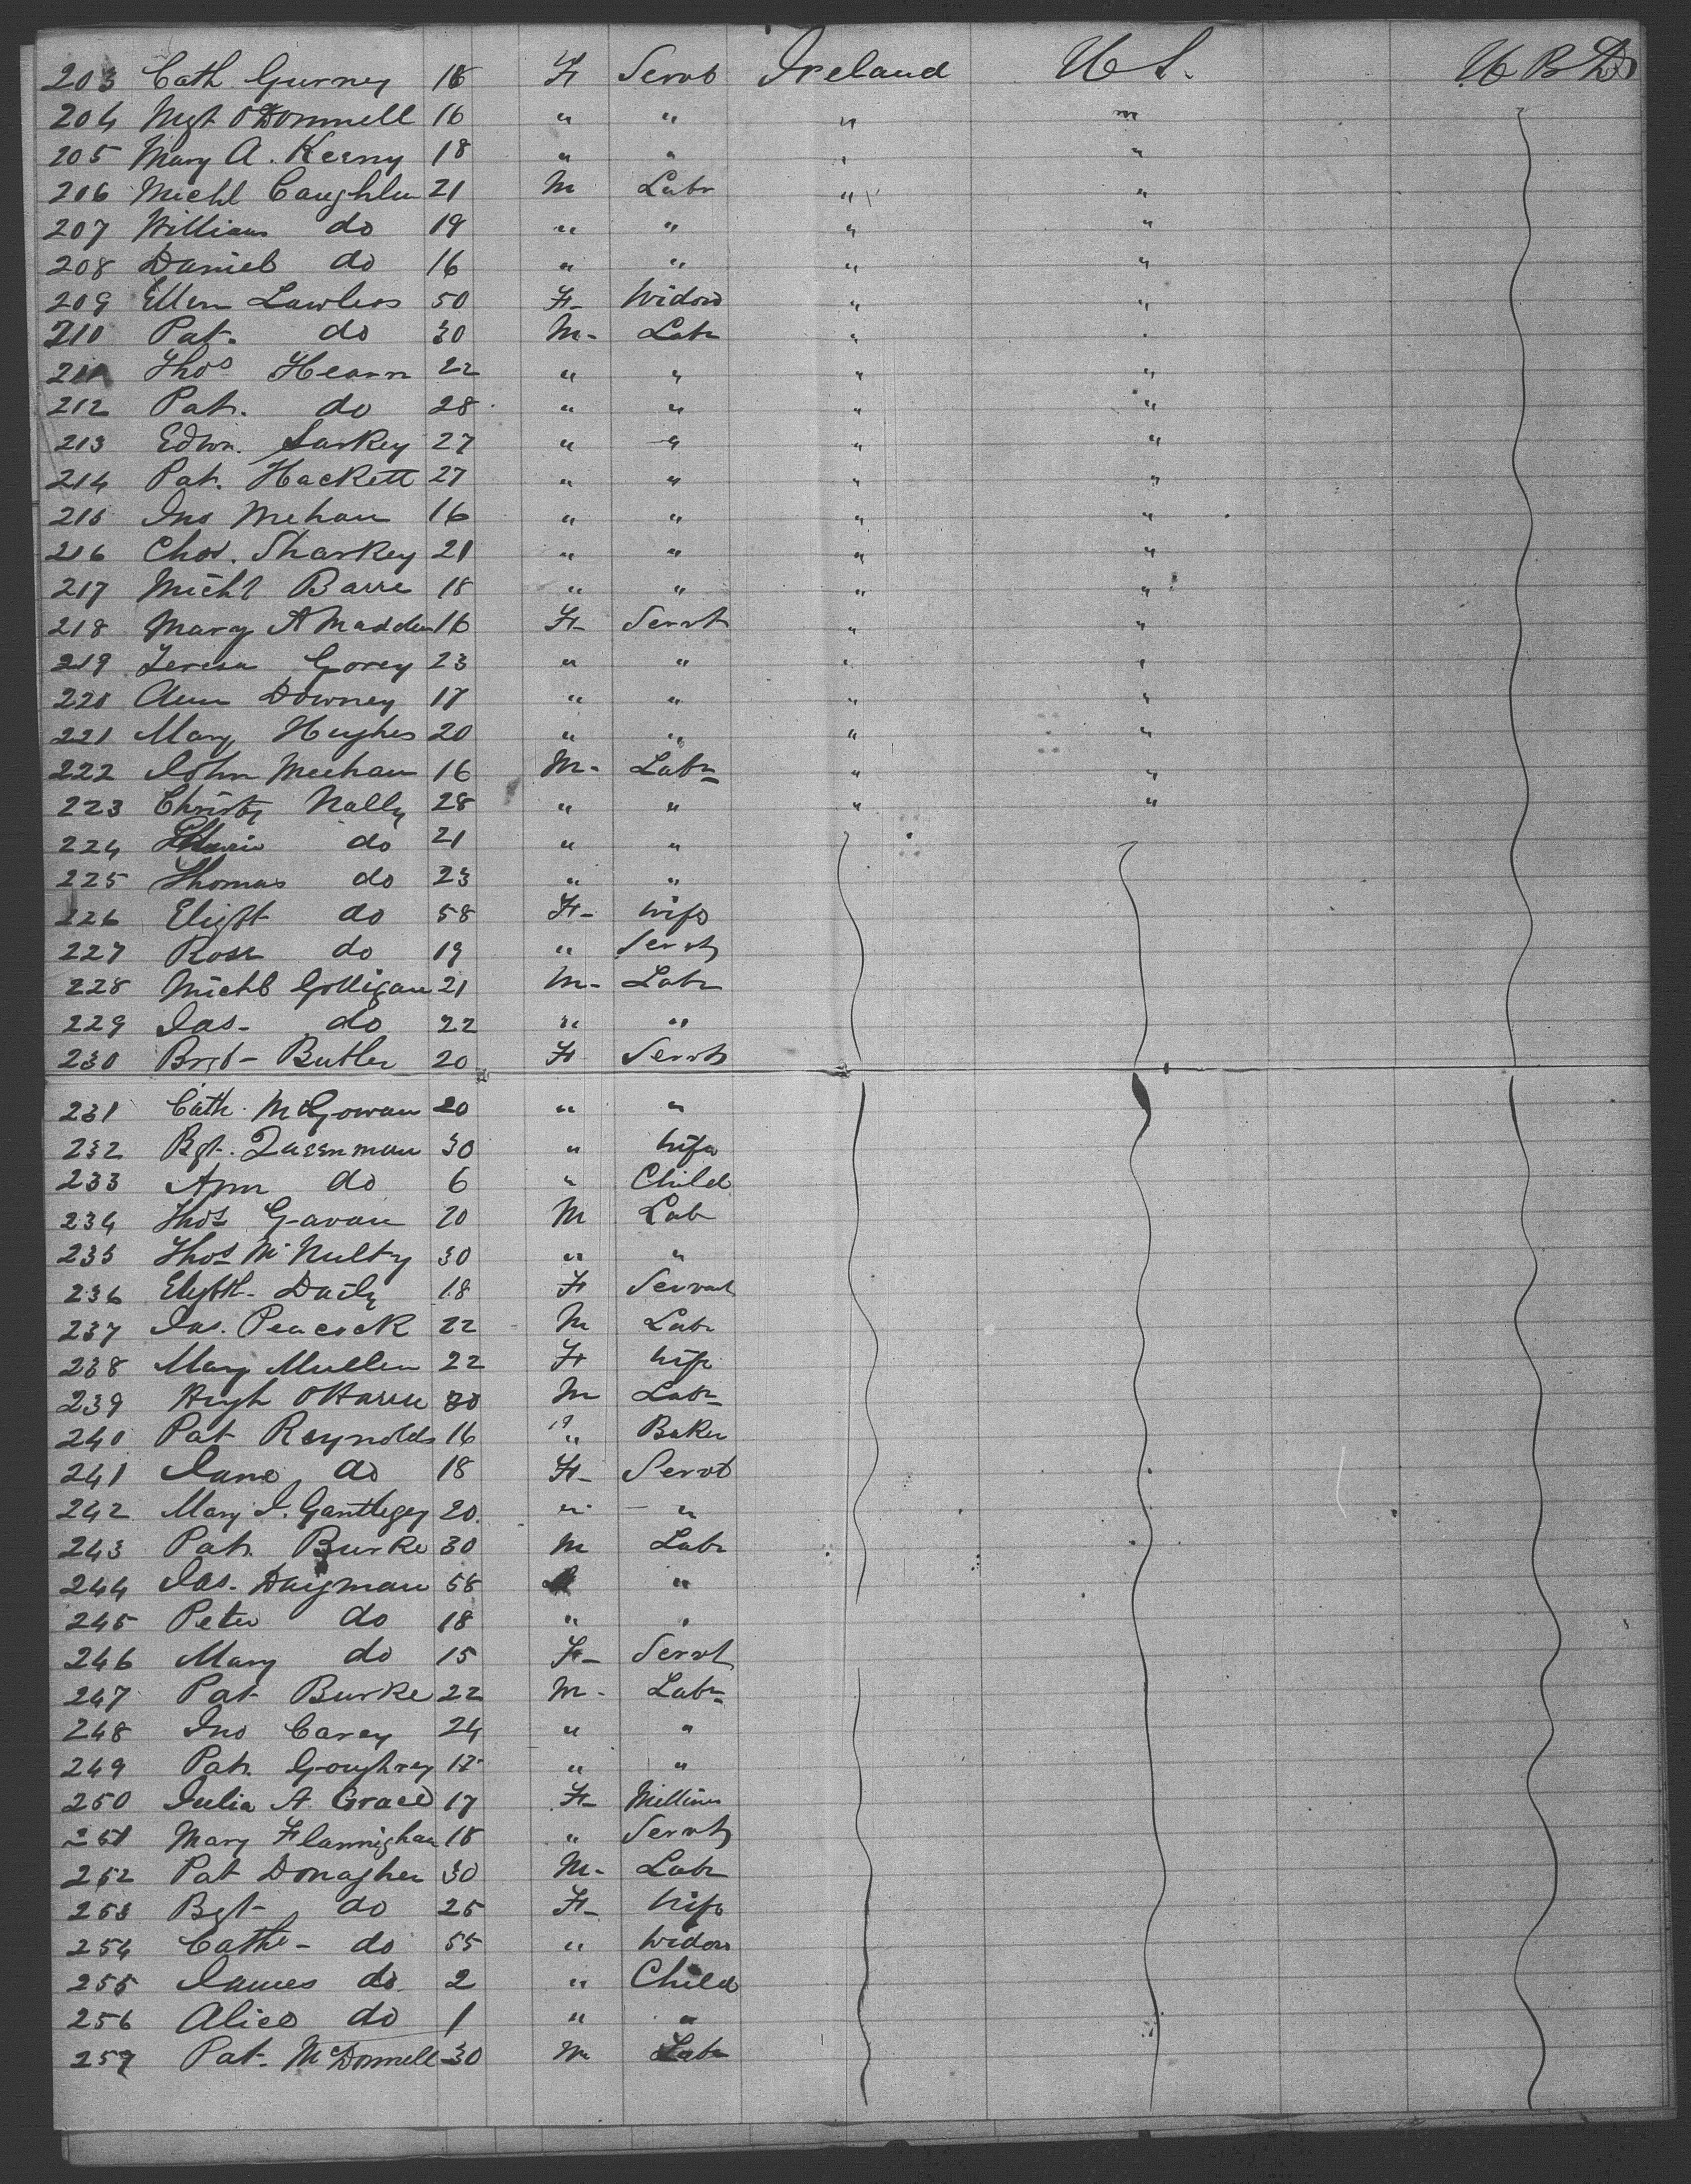 203 Cath Gurney 18 F Servt Ireland U S. U B D
204 Mgt O'Donnell 16 " " " "
205 Mary A. Kerny 18 " " " "
206 Michl Caughlin 21 M Labr " "
207 William do 19 " " " "
208 Daniel do 16 " " " "
209 Ellen Lawless 50 F Widow " "
210 Pat. do 30 M Labr " "
211 Thos Hearn 22 " " " "
212 Pat. do 28 " " " "
213 Edwr. Sarkey 27 " " " "
214 Pat. Hackett 27 " " " "
215 Jno Mehan 16 " " " "
216 Chas. Sharkey 21 " " " "
217 Michl Barre 18 " " " "
218 Mary A Madden 16 F Servt " "
219 Teresa Gorey 23 " " " "
220 Ann Downey 17 " " " "
221 Mary Hughes 20 " " " "
222 John Meehan 16 M Labr " "
223 Christy Nally 28 " " " "
224 do 21 " "
225 Thomas do 23 " "
226 Elizbt do 58 F Wife
227 Rose do 19 " Servt
228 Michl Golligan 21 M Labr
229 Jas- do 22 " "
230 Brgt- Butler 20 F Servt
231 Cath. McGowan 20 " "
232 Bgt. 30 " Wife
233 Ann do 6 " Child
234 Thos Gavan 20 M Lab
235 Thos McNulty 30 " "
236 Elizbth- Daily 18 F Servant
237 Jas. Peacock 22 M Labr
238 Mary Mullen 22 F Wife
239 Hugh O'Harre 30 M Labr
240 Pat Reynolds 16 " Baker
241 Jane do 18 F Servt
242 Mary J. 20 " "
243 Pat. Burke 30 M Labr
244 Jas. Daigman 58 "
245 Peter do 18 " "
246 Mary do 15 F Servt
247 Pat Burke 22 M Labr
248 Jno Carey 24 " "
249 Pat. Goughrey 17 " "
250 Julia A Grace 17 F Milliner
251 Mary Flannighan 18 " Servt
252 Pat Donagher 30 M Labr
253 Bgt- do 25 F Wife
254 Cathe- do 55 " Widow
255 James do 2 " Child
256 Alice do 1 " "
257 Pat. McDonnell 30 M Labr